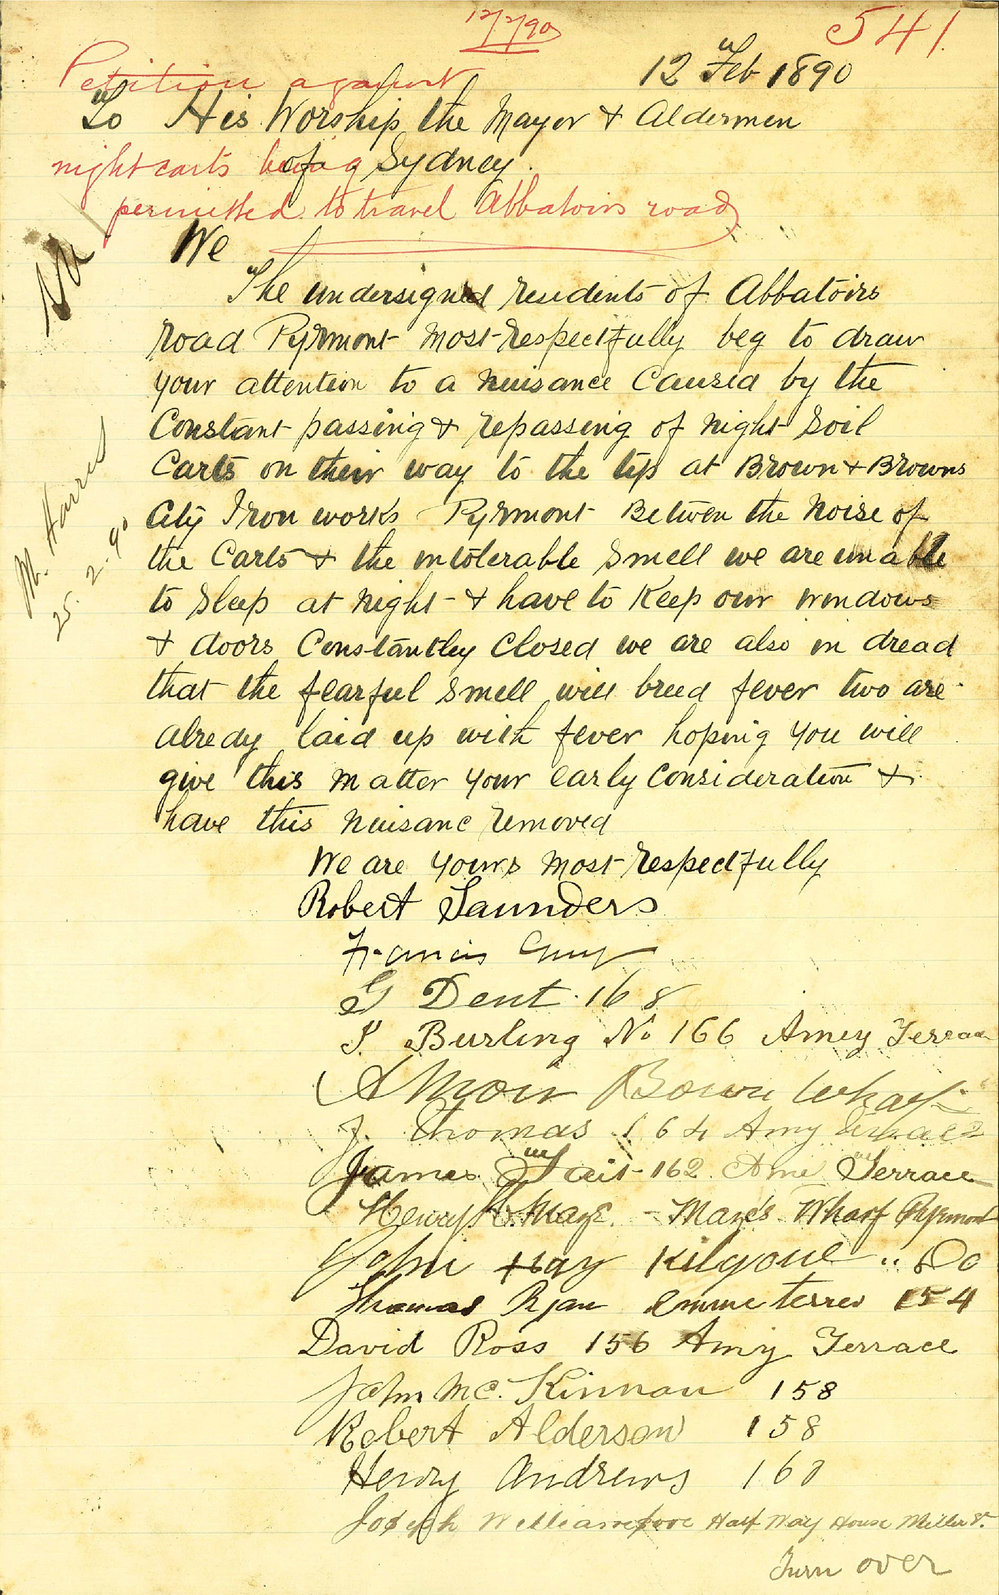 12/2/90
541.
12 Feb 1890
Petition against
To His Worship the Mayor & Aldermen
of Sydney.
night carts being
permitted to travel Abbatoirs road
We
The undersigned residents of Abbatoirs
road Pyrmont most respectfully beg to draw
your attention to a nuisance Caused by the
Constant passing & repassing of night Soil
Carts on their way to the tip at Brown & Browns
City Iron works Pyrmont Between the Noise of
the Carts & the intolerable Smell we are unable
to Sleep at night - & have to Keep our windows
& doors Constantley Closed we are also in dread
that the fearful Smell will breed fever two are
alredy laid up with fever hoping you will
give this matter your Early Consideration &
have this nuisanc removed
We are yours most respectfully
M. Harris
25.2.90
Robert Saunders
Francis Guy
G Dent. 168
Burling No 166 Amey Terrace
A Moir Bown Wharf
J. Thomas 164 Amy
James Tait 162 Ame Terrace
Henry Maze - Maze's Wharf Pyrmont
John Hay Kilgour .. Do
Thomas Ryan terres 154
David Ross 156 Amy Terrace
John Mc. Kinnon 158
Robert Alderson 158
Henry Andrews 160
Joseph Half Way House Miller St.
Turn over